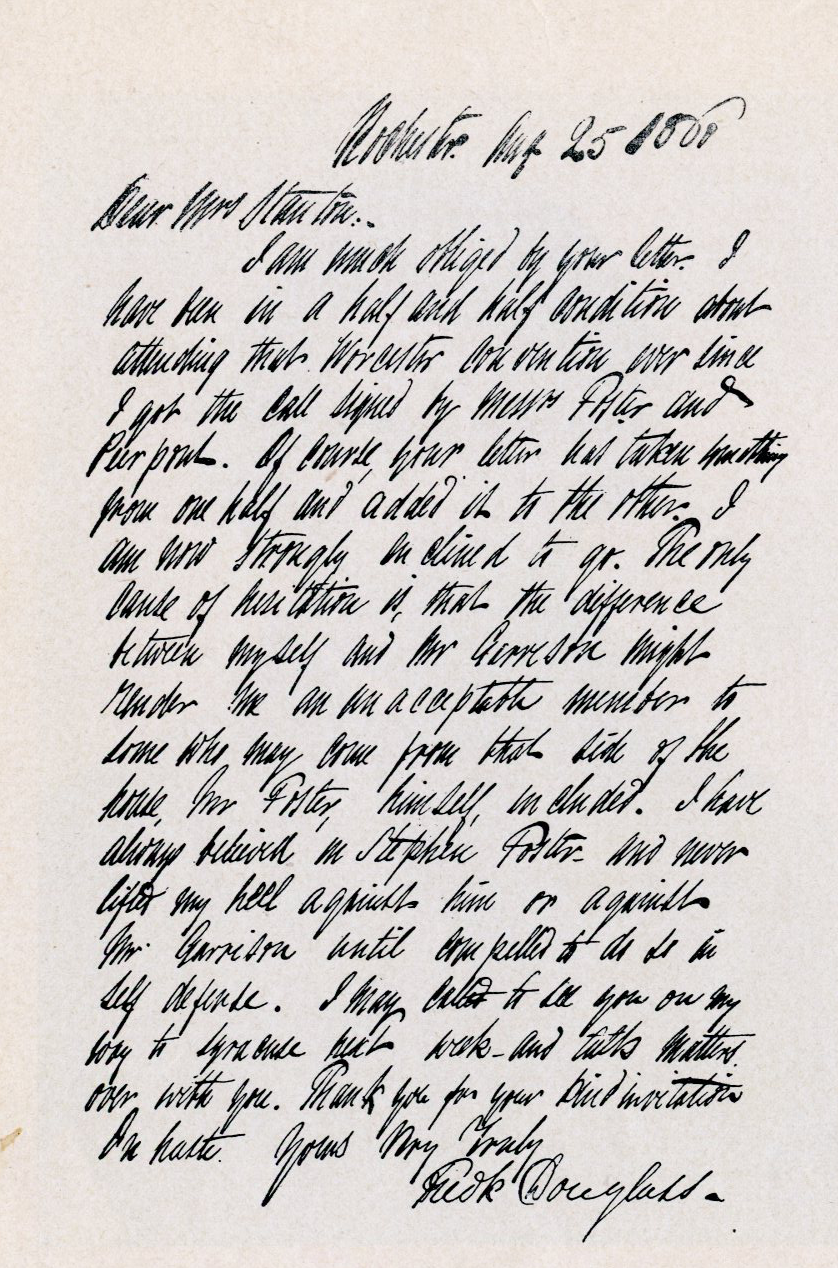 Rochester. Aug 25 1860
Dear Mrs Stanton:.
I am much obliged by your letter. I
have been in a half and half condition about
attending that Worcester convention ever since
I got the call signed by Messrs Foster and
Pierpont. Of course, your letter has taken something
from one half and added it to the other. I
am now strongly inclined to go. The only
cause of hesitation is, that the difference
between myself and Mr Garrison might
render me an unacceptable member to
some who may come from that side of the
house, Mr Foster, himself, included. I have
always believed in Stephen Foster - and never
lifted my heel against him or against
Mr. Garrison until compelled to do so in
self defense. I may call to see you on my
way to Syracuse next week - and talk matters
over with you. Thank you for your kind invitation
In haste. Yours Very Truly
Fredk Douglass.